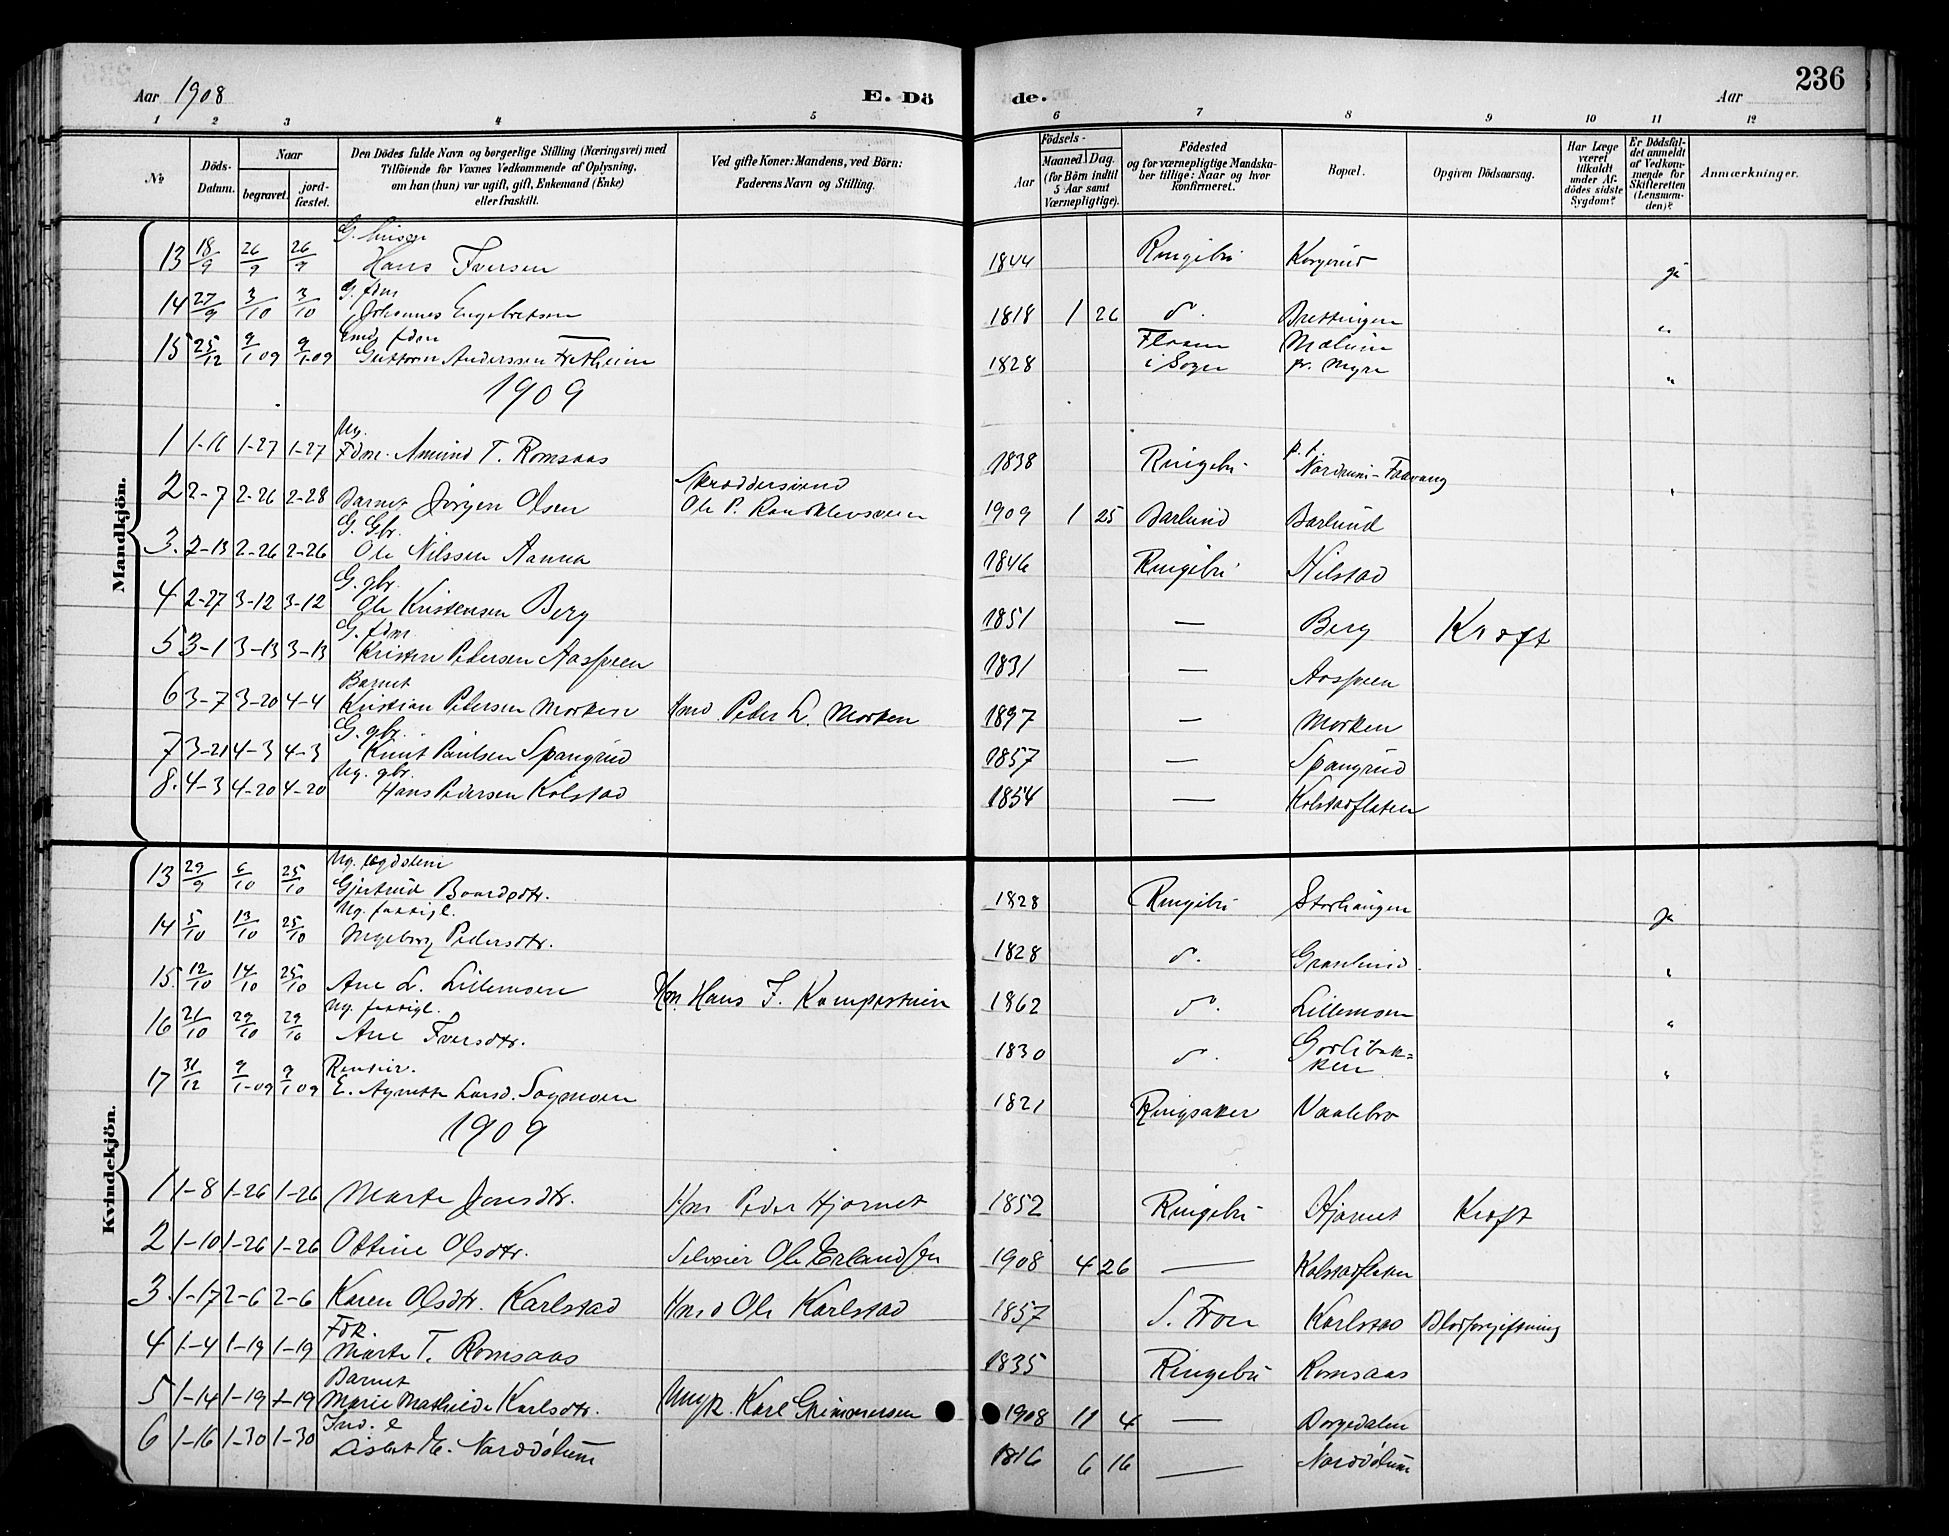 Aar 1908
E. Dö
de.
Aar
236
1 2 3 4 5 6 7 8 9 10 11 12
№
Döds-Datum.
Naar
begravet.
jord-fæstet.
Den Dödes fulde Navn og borgerlige Stilling (Næringsvei) med
Tilföiende for Voxnes Vedkommende af Oplysning,
om han (hun) var ugift, gift, Enkemand (Enke)
eller fraskilt.
Ved gifte Koner: Mandens, ved Börn:
Faderens Navn og Stilling.
Födsels-
Aar
Maaned Dag.
(for Börn indtil
5 Aar samt
Værnepligtige).
Födested
og for værnepligtige Mandska-
ber tillige: Naar og hvor
konfirmeret.
Bopæl.
Opgiven Dödsaarsag.
Har Læge
været
tilkaldt
under Af-
dödes sidste
Sygdom?
Er Dödsfal-
det anmeldt
af Vedkom-
mende for
Skifteretten
(Lensman-
den)?
Anmærkninger.
Mandkjön.
13 18/9 26/9 26/9 Hans Iversen 1844 Ringebu ja
14 27/9 3/10 3/10 G. fdm Johannes Engebretsen 1818 1 26 d. Brettingen "
15 25/12 9/1 09 9/1 09 Guttorm Anderssen Fretheim 1828 Flaam i Sogn "
1909
1 1-16 1-27 1-27 Ug. Fdm. Amund T. Romsaas 1838 Ringebu "
2 2-7 2-26 2-28 Barnet Jörgen Olsen Skræddersvend Ole P. 1909 1 25 Barlund Barlund
3. 2-13 2-26 2-26 G. Gbr. Ole Nilssen 1846 Ringebu Hilstad
4 2-27 3-12 3-12 G. gbr. Ole Kristensen Berg 1851 — Berg Kræft
5 3-1 3-13 3-13 G. fdm Kristen Pedersen Aasfreen 1831 — Aasfreen
6 3-7 3-20 4-4 Barnet Kristian Petersen Morken Gmd. Peder L. Morken 1897 — Morken
7 3-21 4-3 4-3 G. gbr. Knut Paulsen Spangrud 1857 — Spangrud
8. 4-3 4-20 4-20 Ug. gbr. Hans Pedersen Kolstad 1854 — Kolstadflaten
Kvindekjön.
13 29/9 6/10 25/10 Ug. Gjertrud Baardsdtr. 1828 Ringebu Storhaugen ja
14 5/10 13/10 25/10 Ug. fattigl. Ingeborg Pedersdtr. 1828 d. "
15. 12/10 14/10 25/10 Ane L. Lillemoen Hans J. Kampestuen 1862 do. Lillemoen "
16 21/10 29/10 29/10 Ug. fattigl. Ane Iversdtr. 1830 d. "
17 31/12 9/1-09 9/1 09 E. Agnette Larsd. Sagmoen 1821 Ringsaker Vaalebro
1909
1 1-8 1-26 1-26 Marte Jonsdtr. Peder Hjornet 1852 Ringebu Hjornet Kræft
2 1-10 1-26 1-26 Ottine Olsdtr. Selveier Ole Erlandsen 1908 4 26 — Kolstadflaten
3. 1-17 2-6 2-6 Karen Olsdtr. Karlstad Ole Karlstad 1857 S. Fron Karlstad Blodforgiftning
4 1-4 1-19 1-19 Marte T. Romsaas 1835 Ringebu Romsaas
5 1-14 1-19 1-19 Barnet Marie Mathilde Karlsdtr. Karl Grimmersen 1908 11 4 — Dorgedalen
6 1-16 1-30 1-30 Lisbet E. Norddölum 1816 6 16 — Norddölum